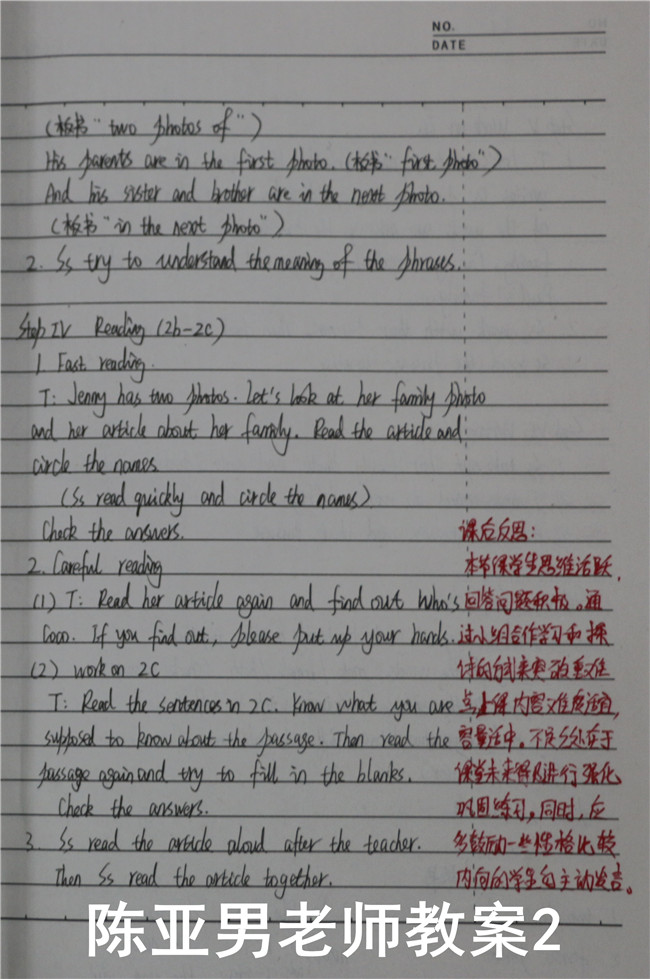 NO.
DATE
(板书"two photos of")
His parents are in the first photo. (板书"first photo")
And his sister and brother are in the next photo.
(板书"in the next photo")
2. Ss try to understand the meaning of the phrases.
Step IV Reading (2b-2c)
1. Fast reading.
T: Jenny has two photos. Let's look at her family photo
and her article about her family. Read the article and
circle the names
(Ss read quickly and circle the names)
Check the answers.
2. Careful reading
(1) T: Read her article again and find out Who's
Coco. If you find out, please put up your hands.
(2) work on 2C
T: Read the sentences in 2C. Know what you are
supposed to know about the passage. Then read the
passage again and try to fill in the blanks.
Check the answers.
3. Ss read the article aloud after the teacher.
Then Ss read the article together.
课后反思:
本节课学生思维活跃,
回答问题积极。通
过小组合作学习和探
讨的方式来突破重难
点,上课内容难度适宜,
容量适中。不足之处在于
课堂未来得及进行强化
巩固练习,同时,应
多鼓励一些性格比较
内向的学生自主动发言。
陈亚男老师教案2